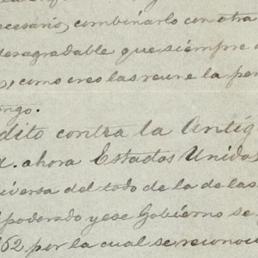 ecesario, combinarlo con otra
desagradable que siempre
, como creo las reune la per
ongo.
dito contra la Antig
a. ahora Estados Unidos
iversa del todo de la de las
poderado y ese Gobierno se
62 por la cual se reconoci